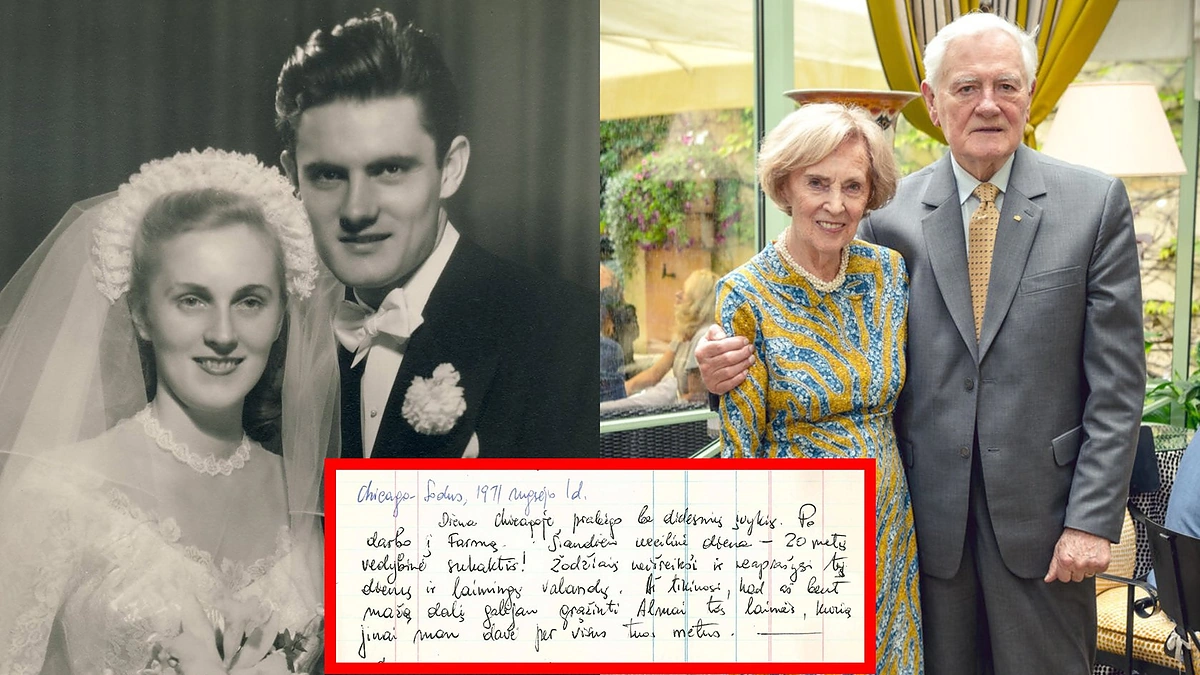 Chicago - Sodus, 1971 rugsėjo 1 d.
Diena Chicagoje prabėgo be didesnių įvykių. Po
darbo į Farmą. Šiandien neeilinė diena - 20 metų
vedybinė sukaktis! Žodžiais neišreikši ir neaprašysi tų
dienų ir laimingų valandų. Aš tikiuosi, kad aš bent
mažą dalį galėjau grąžinti Almai tos laimės, kurią
jinai man davė per visus tuos metus.